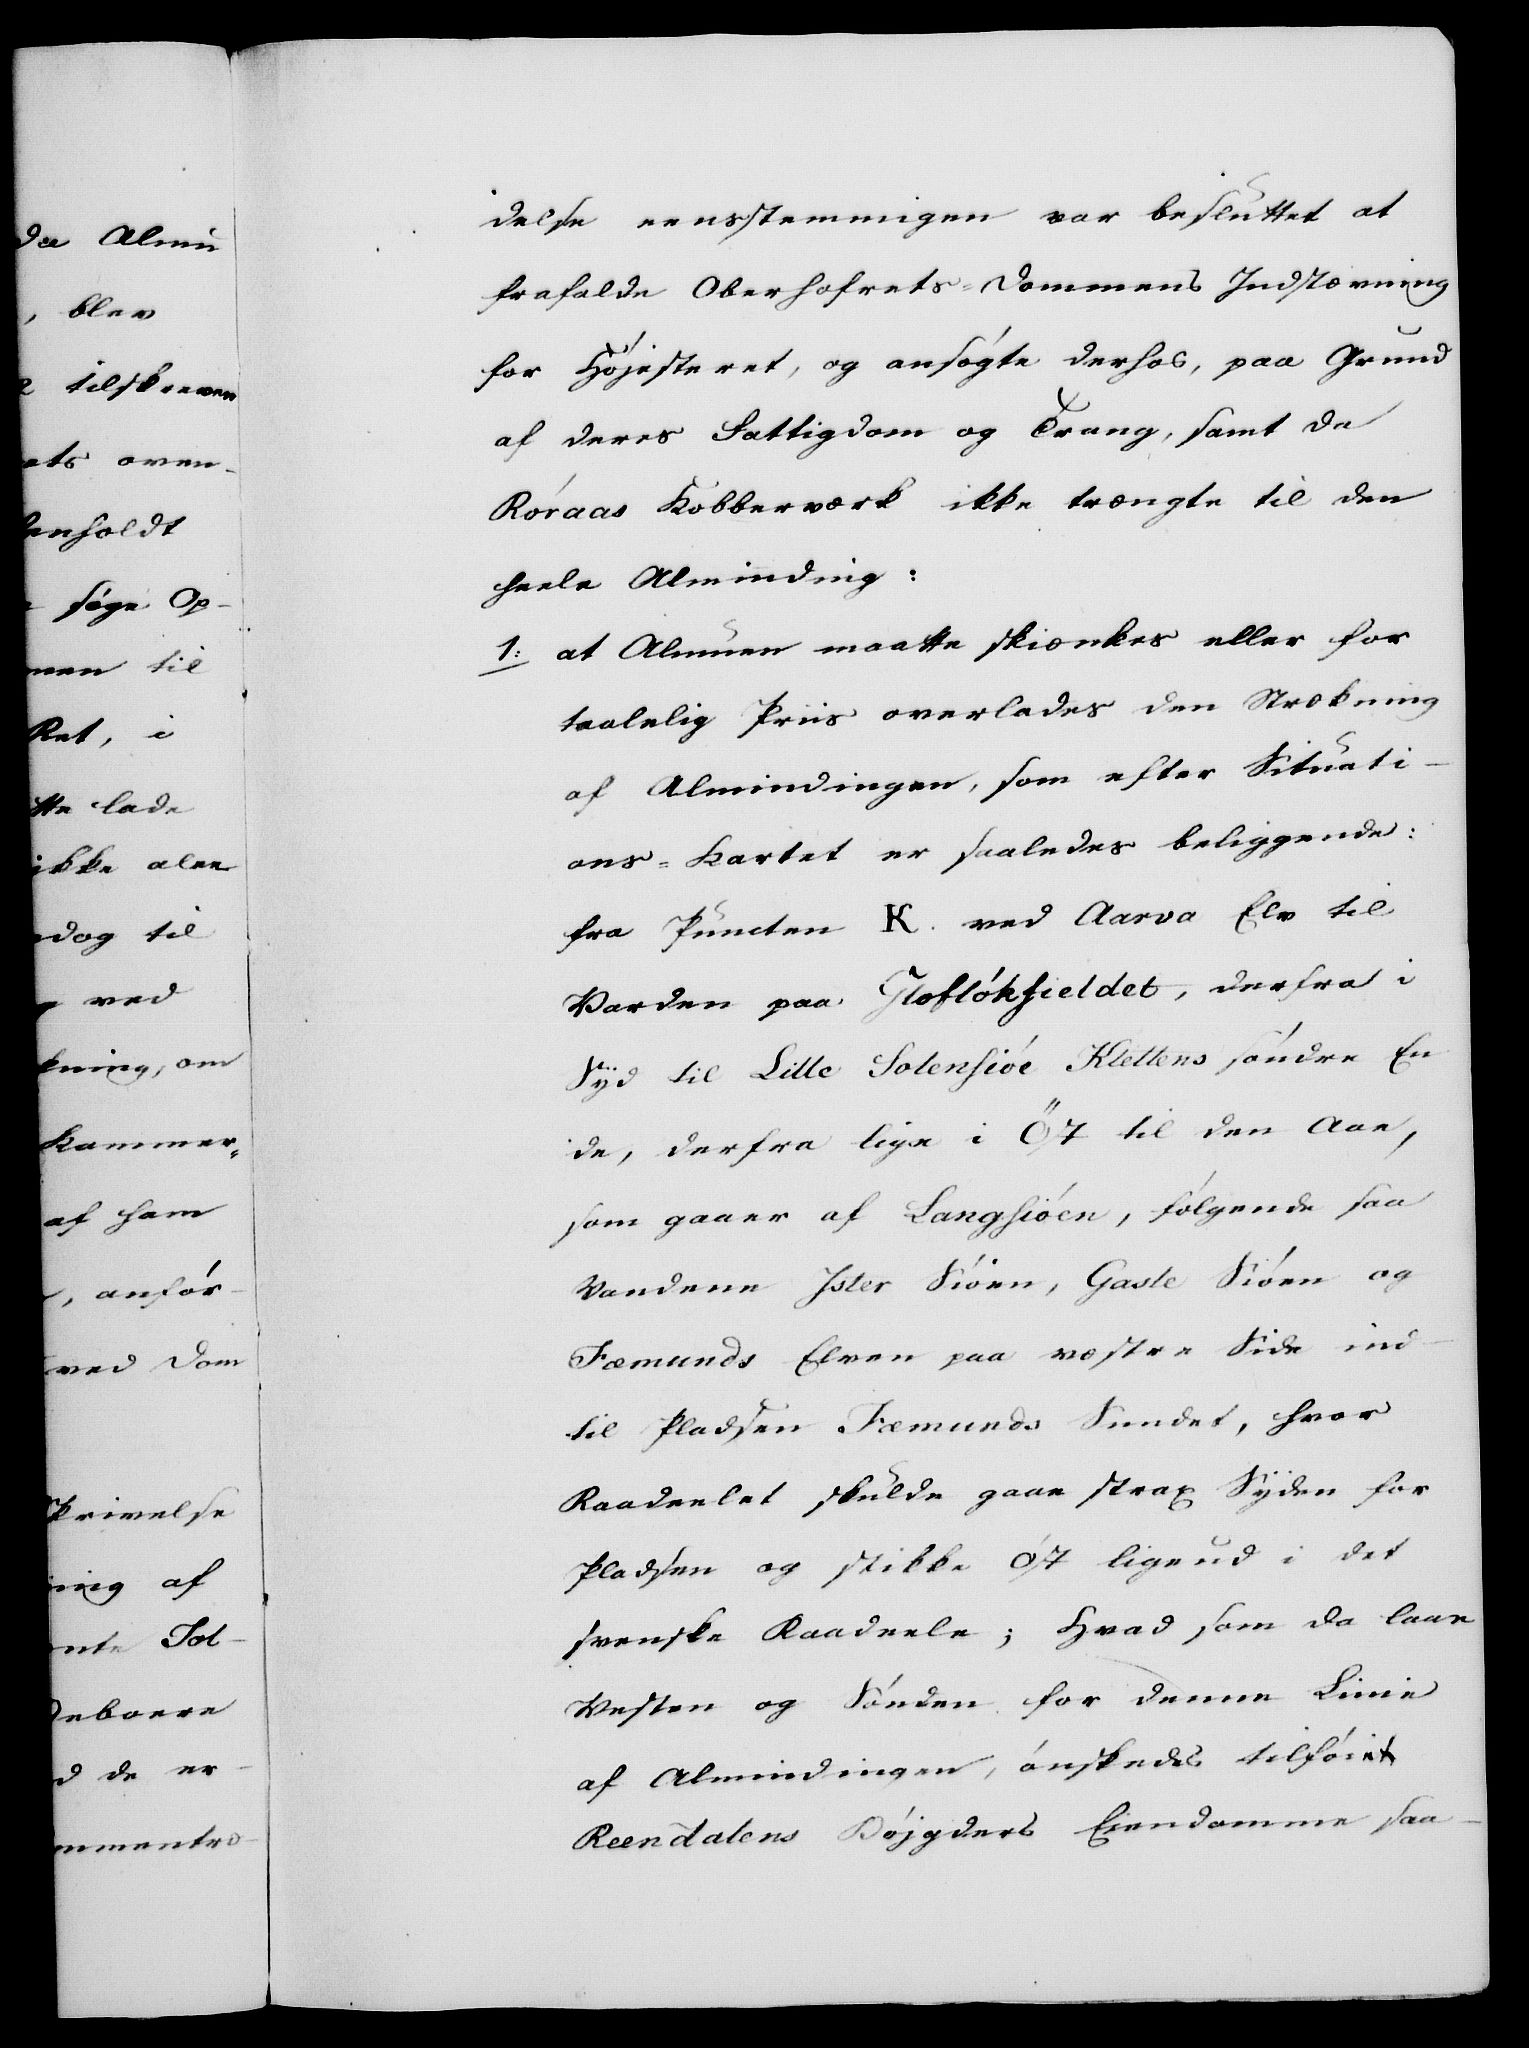 da Almu
, blev
tilskreven
ets oven-
denholdt
søge Op-
men til
Ret, i
tte lade
ikke alee
dog til
ved
kning, om
Kammer-
af ham
, anfør-
ved Dom
Skrivelse
ning af
ente Sol-
deboere
d de er-
mmentræ-
delse eensstemmigen var besluttet at
frafalde Oberhofrets-Dommens Indstævning
for Højesteret, og ansøgte derhos, paa Grund
af deres Fattigdom og Trang, samt da
Røraas Kobberværk ikke trængte til den
heele Alminding:
1: at Almuen maatte skiænkes eller for
taalelig Priis overlades den Strækning
af Almindingen, som efter Situati-
ons-Kartet er saaledes beliggende:
fra Puncten K. ved Aarva Elv til
Varden paa Gløfløkfieldet, derfra i
Syd til Lille Solensiøe Klettens søndre En
de, derfra lige i Øst til den Aae,
som gaaer af Langsiøen, følgende saa
Vandene Ister Siøen, Gaste Siøen og
Fæmunds Elven paa væstre Side ind-
til Pladsen Fæmunds Sundet, hvor
Raadeelet skulde gaae strax Syden for
Pladsen og stikke Øst ligeud i det
svenske Raadeele; Hvad som da laae
Vesten og Sønden for denne Linie
af Almindingen, ønskedes tilføiet
Reendalens Bøjgders Eiendomme saa-